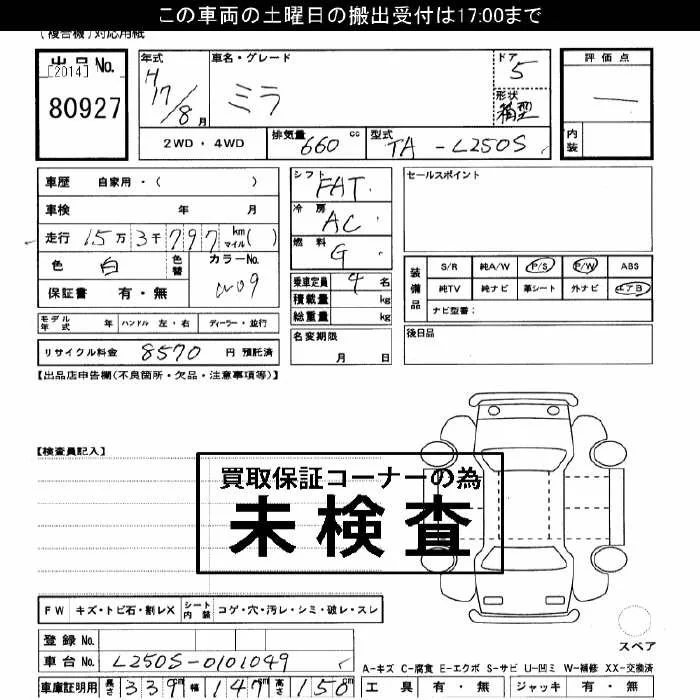 この車両の土曜日の搬出受付は17:00まで
(複合機)対応用紙
出品No.
[2014]
80927
年式 H17/8月
車名・グレード ミラ
ドア 5
形状 箱型
評価点 —
内装
2WD・4WD
排気量 660 cc
型式 TA-L250S
車歴 自家用・( )
車検 年 月
走行 15万3千797 km マイル( )
色 白 色替
カラーNo. W09
保証書 有・無
シフト FAT
冷房 AC
燃料 G
乗車定員 4名
積載量 kg
総重量 kg
名変期限 月 日
セールスポイント
装備品
S/R 純A/W P/S P/W ABS
純TV 純ナビ 革シート 外ナビ エアB
ナビ型番:
後日品
モデル年式 年 ハンドル 左・右 ディーラー・並行
リサイクル料金 8570 円 預託済
【出品店申告欄(不良箇所・欠品・注意事項等)】
【検査員記入】
買取保証コーナーの為
未検査
FW キズ・トビ石・割レX シート内装 コゲ・穴・汚レ・シミ・破レ・スレ
登録No.
車台No. L250S-0101049
車庫証明用 長さ 339cm 幅 147cm 高さ 150cm
スペア
A-キズ C-腐食 E-エクボ S-サビ U-凹ミ W-補修 XX-交換済
工具 有・無 ジャッキ 有・無